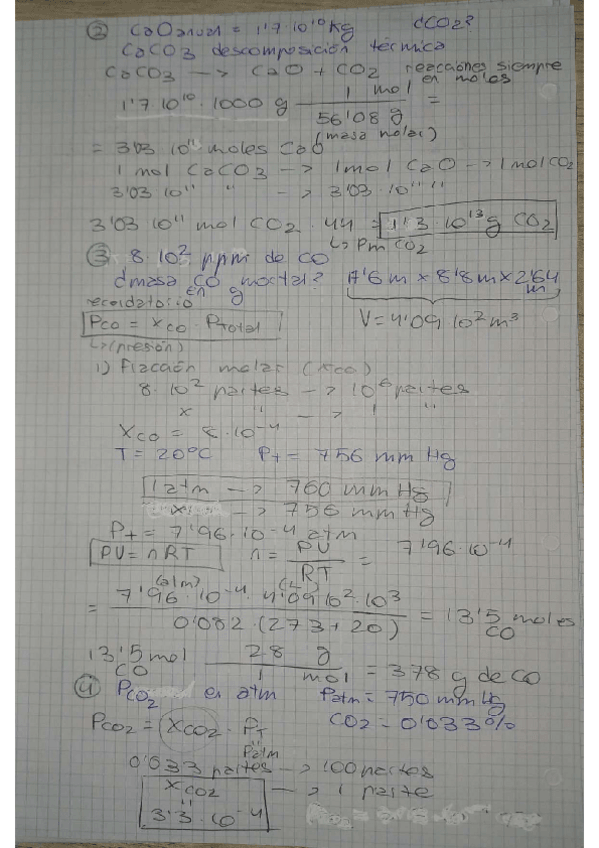 ② CaO anual = 1'7·10¹⁰ kg dCO2?
CaCO3 descomposición térmica
CaCO3 —> CaO + CO2 reacciones siempre en moles
1'7·10¹⁰·1000 g 1 mol / 56'08 g =
(masa molar)
= 3'03 10¹¹ moles CaO
1 mol CaCO3 —> 1 mol CaO —> 1 mol CO2
3'03 10¹¹ " —> 3'03·10¹¹ "
3'03 10¹¹ mol CO2 · 44 = 1'3·10¹³ g CO2
↳ Pm CO2
③ 8·10² ppm de CO
dmasa CO mortal? 17'6 m x 8'8 m x 2'64 m
en g
recordatorio
PCO = xCO · PTotal V = 4'09 10² m³
↳ (presión)
1) Fracción molar (xCO)
8·10² partes —> 10⁶ partes
x " —> 1 "
XCO = 8·10⁻⁴
T = 20ºC Pt = 756 mm Hg
1 atm —> 760 mm Hg
x —> 756 mm Hg
Pt = 7'96·10⁻⁴ atm
PV = nRT n = PV / RT = 7'96·10⁻⁴
(atm) (L)
= 7'96·10⁻⁴·4'09·10²·10³ / 0'082·(273+20) = 13'5 moles CO
13'5 mol CO 28 g / 1 mol = 378 g de CO
④ PCO2 en atm Patm = 750 mm Hg
PCO2 = XCO2 · PT CO2 = 0'033%
"
Patm
0'033 partes —> 100 partes
XCO2 —> 1 parte
"
3'3·10⁻⁴